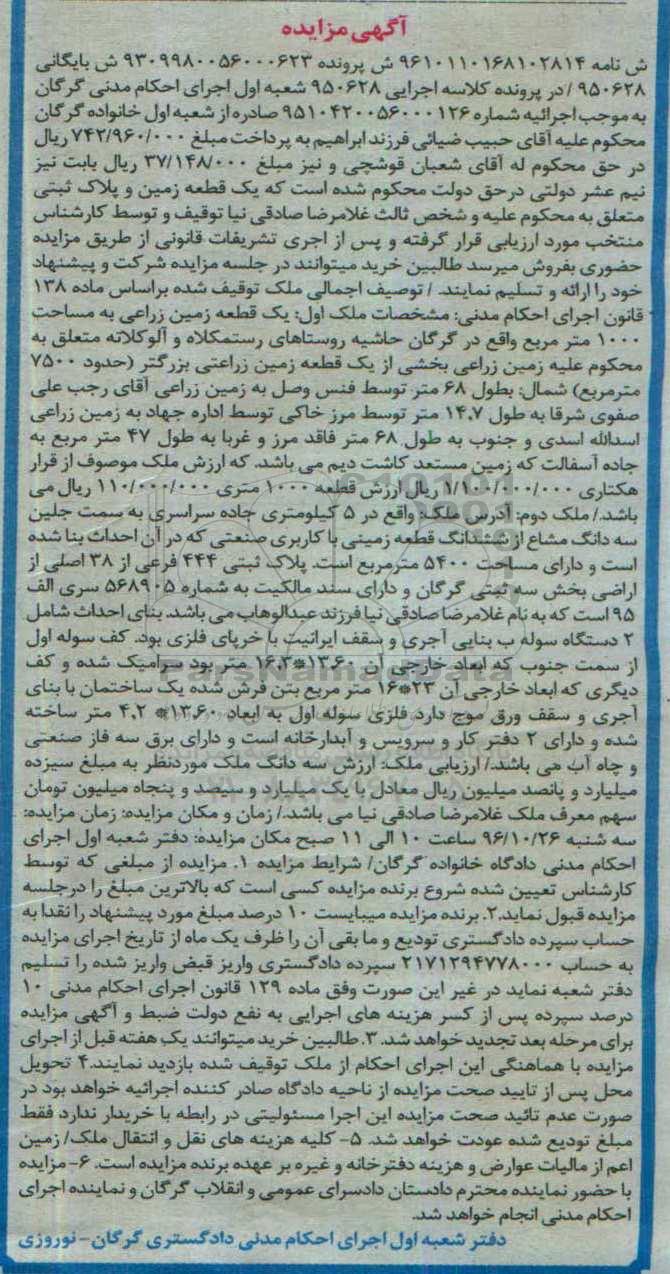 آگهی مزایده
ش نامه ۹۶۱۰۱۱۰۱۶۸۱۰۲۸۱۴ ش پرونده ۹۳۰۹۹۸۰۰۵۶۰۰۰۶۲۳ ش بایگانی
۹۵۰۶۲۸ / در پرونده کلاسه اجرایی ۹۵۰۶۲۸ شعبه اول اجرای احکام مدنی گرگان
به موجب اجرائیه شماره ۹۵۱۰۴۲۰۰۵۶۰۰۰۱۲۶ صادره از شعبه اول خانواده گرگان
محکوم علیه آقای حبیب ضیائی فرزند ابراهیم به پرداخت مبلغ ۷۴۲/۹۶۰/۰۰۰ ریال
در حق محکوم له آقای شعبان قوشچی و نیز مبلغ ۳۷/۱۴۸/۰۰۰ ریال بابت نیز
نیم عشر دولتی درحق دولت محکوم شده است که یک قطعه زمین و پلاک ثبتی
متعلق به محکوم علیه و شخص ثالث غلامرضا صادقی نیا توقیف و توسط کارشناس
منتخب مورد ارزیابی قرار گرفته و پس از اجری تشریفات قانونی از طریق مزایده
حضوری بفروش میرسد طالبین خرید میتوانند در جلسه مزایده شرکت و پیشنهاد
خود را ارائه و تسلیم نمایند. / توصیف اجمالی ملک توقیف شده براساس ماده ۱۳۸
قانون اجرای احکام مدنی: مشخصات ملک اول: یک قطعه زمین زراعی به مساحت
۱۰۰۰ متر مربع واقع در گرگان حاشیه روستاهای رستمکلاه و آلوکلاته متعلق به
محکوم علیه زمین زراعی بخشی از یک قطعه زمین زراعتی بزرگتر (حدود ۷۵۰۰
مترمربع) شمال: بطول ۶۸ متر توسط فنس وصل به زمین زراعی آقای رجب علی
صفوی شرقا به طول ۱۴.۷ متر توسط مرز خاکی توسط اداره جهاد به زمین زراعی
اسدالله اسدی و جنوب به طول ۶۸ متر فاقد مرز و غربا به طول ۴۷ متر مربع به
جاده آسفالت که زمین مستعد کاشت دیم می باشد. که ارزش ملک موصوف از قرار
هکتاری ۱/۱۰۰/۰۰۰/۰۰۰ ریال ارزش قطعه ۱۰۰۰ متری ۱۱۰/۰۰۰/۰۰۰ ریال می
باشد./ ملک دوم: آدرس ملک: واقع در ۵ کیلومتری جاده سراسری به سمت جلین
سه دانگ مشاع از ششدانگ قطعه زمینی با کاربری صنعتی که در آن احداث بنا شده
است و دارای مساحت ۵۴۰۰ مترمربع است. پلاک ثبتی ۴۴۴ فرعی از ۳۸ اصلی از
اراضی بخش سه ثبتی گرگان و دارای سند مالکیت به شماره ۵۶۸۹۰۵ سری الف
۹۵ است که به نام غلامرضا صادقی نیا فرزند عبدالوهاب می باشد. بنای احداث شامل
۲ دستگاه سوله ب بنایی آجری و سقف ایرانیت با خرپای فلزی بود. کف سوله اول
از سمت جنوب که ابعاد خارجی آن ۱۳.۶۰*۱۶.۳ متر بود سرامیک شده و کف
دیگری که ابعاد خارجی آن ۲۳*۱۶ متر مربع بتن فرش شده یک ساختمان با بنای
آجری و سقف ورق موج دارد فلزی سوله اول به ابعاد ۱۳.۶۰* ۴.۲ متر ساخته
شده و دارای ۲ دفتر کار و سرویس و آبدارخانه است و دارای برق سه فاز صنعتی
و چاه آب می باشد./ ارزیابی ملک: ارزش سه دانگ ملک موردنظر به مبلغ سیزده
میلیارد و پانصد میلیون ریال معادل با یک میلیارد و سیصد و پنجاه میلیون تومان
سهم معرف ملک غلامرضا صادقی نیا می باشد./ زمان و مکان مزایده: زمان مزایده:
سه شنبه ۹۶/۱۰/۲۶ ساعت ۱۰ الی ۱۱ صبح مکان مزایده: دفتر شعبه اول اجرای
احکام مدنی دادگاه خانواده گرگان/ شرایط مزایده ۱. مزایده از مبلغی که توسط
کارشناس تعیین شده شروع برنده مزایده کسی است که بالاترین مبلغ را درجلسه
مزایده قبول نماید.۲. برنده مزایده میبایست ۱۰ درصد مبلغ مورد پیشنهاد را نقدا به
حساب سپرده دادگستری تودیع و ما بقی آن را ظرف یک ماه از تاریخ اجرای مزایده
به حساب ۲۱۷۱۲۹۴۷۷۸۰۰۰ سپرده دادگستری واریز قبض واریز شده را تسلیم
دفتر شعبه نماید در غیر این صورت وفق ماده ۱۲۹ قانون اجرای احکام مدنی ۱۰
درصد سپرده پس از کسر هزینه های اجرایی به نفع دولت ضبط و آگهی مزایده
برای مرحله بعد تجدید خواهد شد. ۳. طالبین خرید میتوانند یک هفته قبل از اجرای
مزایده با هماهنگی این اجرای احکام از ملک توقیف شده بازدید نمایند.۴ تحویل
محل پس از تایید صحت مزایده از ناحیه دادگاه صادر کننده اجرائیه خواهد بود در
صورت عدم تائید صحت مزایده این اجرا مسئولیتی در رابطه با خریدار ندارد فقط
مبلغ تودیع شده عودت خواهد شد. ۵- کلیه هزینه های نقل و انتقال ملک/ زمین
اعم از مالیات عوارض و هزینه دفترخانه و غیره بر عهده برنده مزایده است. ۶- مزایده
با حضور نماینده محترم دادستان دادسرای عمومی و انقلاب گرگان و نماینده اجرای
احکام مدنی انجام خواهد شد.
دفتر شعبه اول اجرای احکام مدنی دادگستری گرگان- نوروزی
ParsNamadData